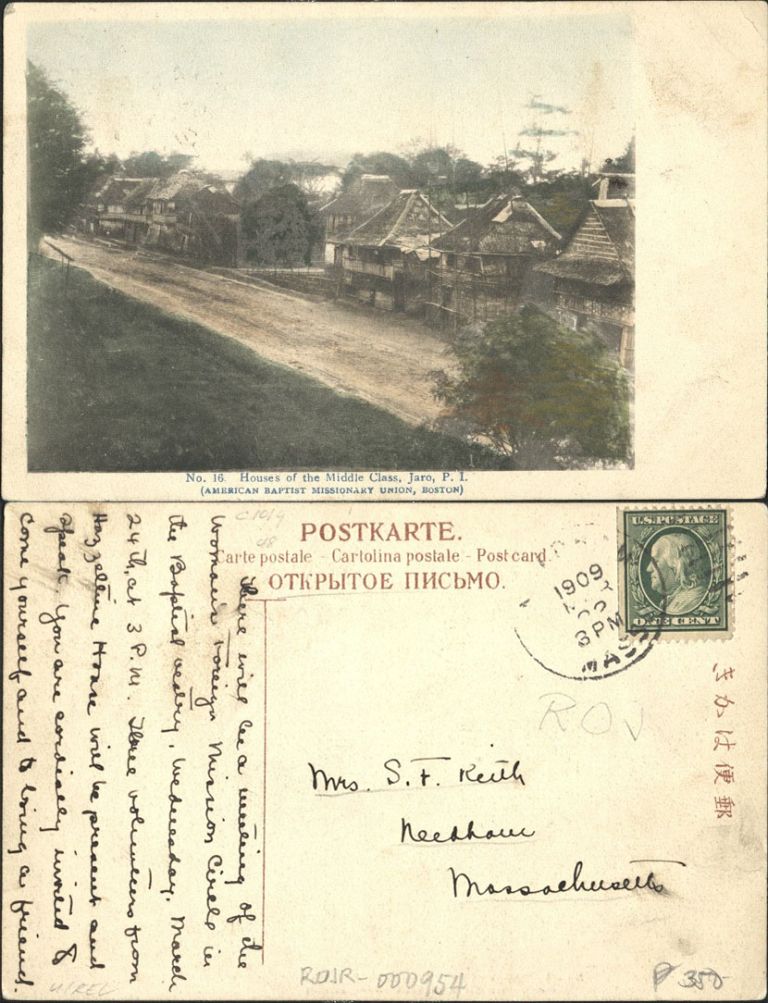 No. 16. Houses of the Middle Class, Jaro, P. I.
(AMERICAN BAPTIST MISSIONARY UNION, BOSTON)
POSTKARTE.
Carte postale - Cartolina postale - Post card.
ОТКРЫТОЕ ПИСЬМО.
U.S. POSTAGE
ONE CENT
1909
3 PM
MASS
There will be a meeting of the
Woman's Foreign Mission Circle in
the Baptist vestry, Wednesday, March
24th, at 3 P.M. Three volunteers from
Hazzeltine House will be present and
speak. You are cordially invited to
come yourself and to bring a friend.
ROV
きかは便郵
Mrs. S. F. Keith
Needham
Massachusetts
ROJR-000954
P 350-